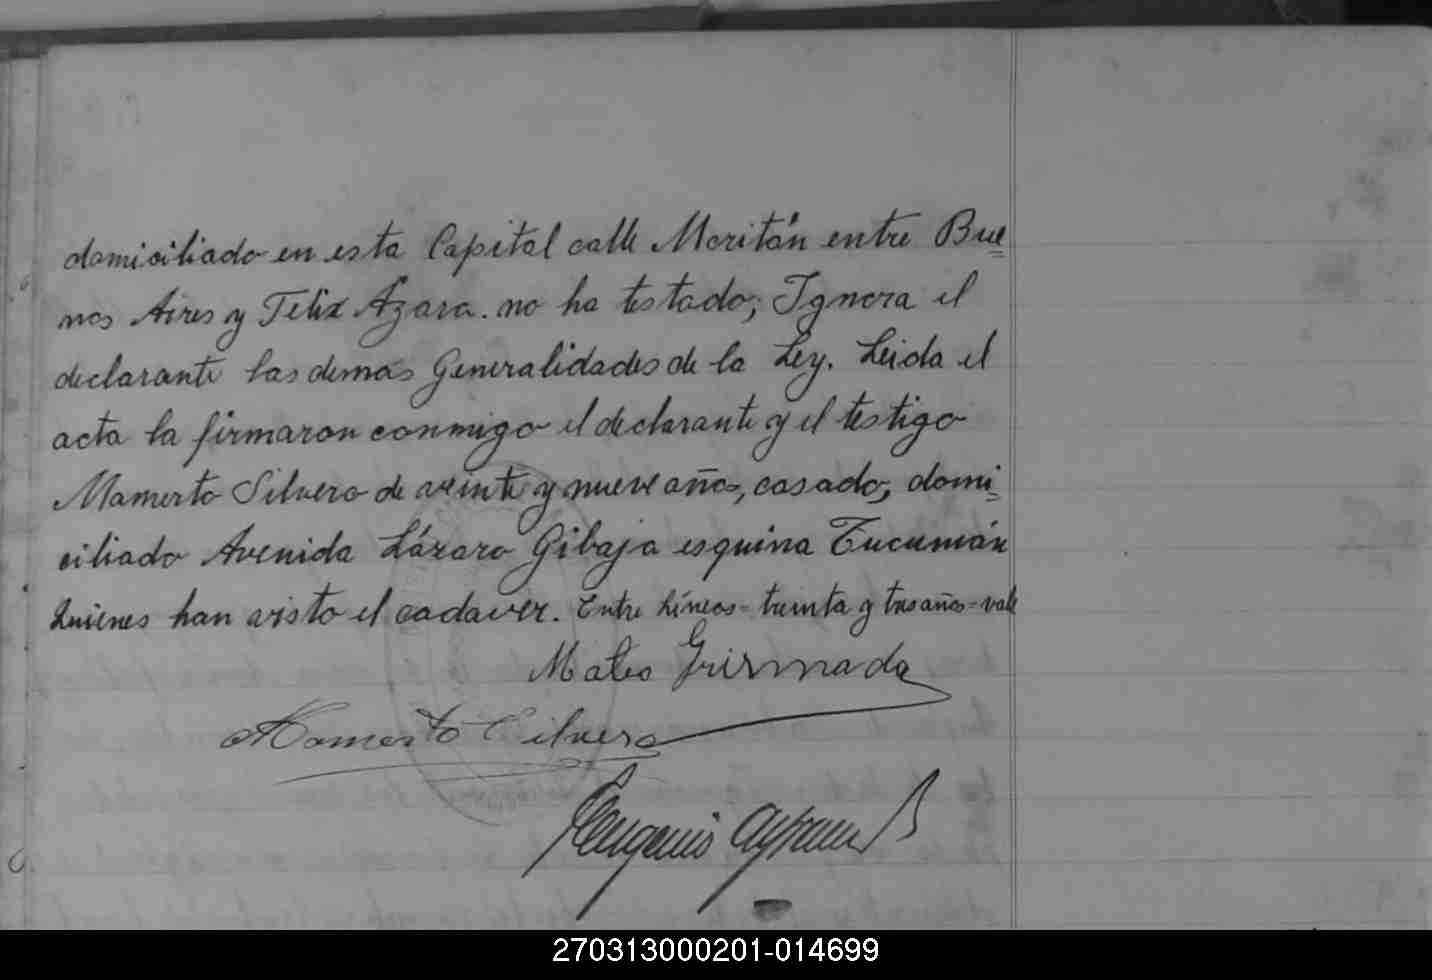 domiciliado en esta Capital calle Moritán entre Bue=
nos Aires y Felix Azara. no ha testado; Ignora el
declarante las demás Generalidades de la Ley. Leida el
acta la firmaron conmigo el declarante y el testigo
Mamerto Silvero de veinte y nueve años, casado, domi=
ciliado Avenida Lázaro Gibaja esquina Tucumán
Quienes han visto el cadaver. Entre Líneas = treinta y tres años = vale
Mateo Grismada
Mamerto Silvero
Eugenio
270313000201-014699